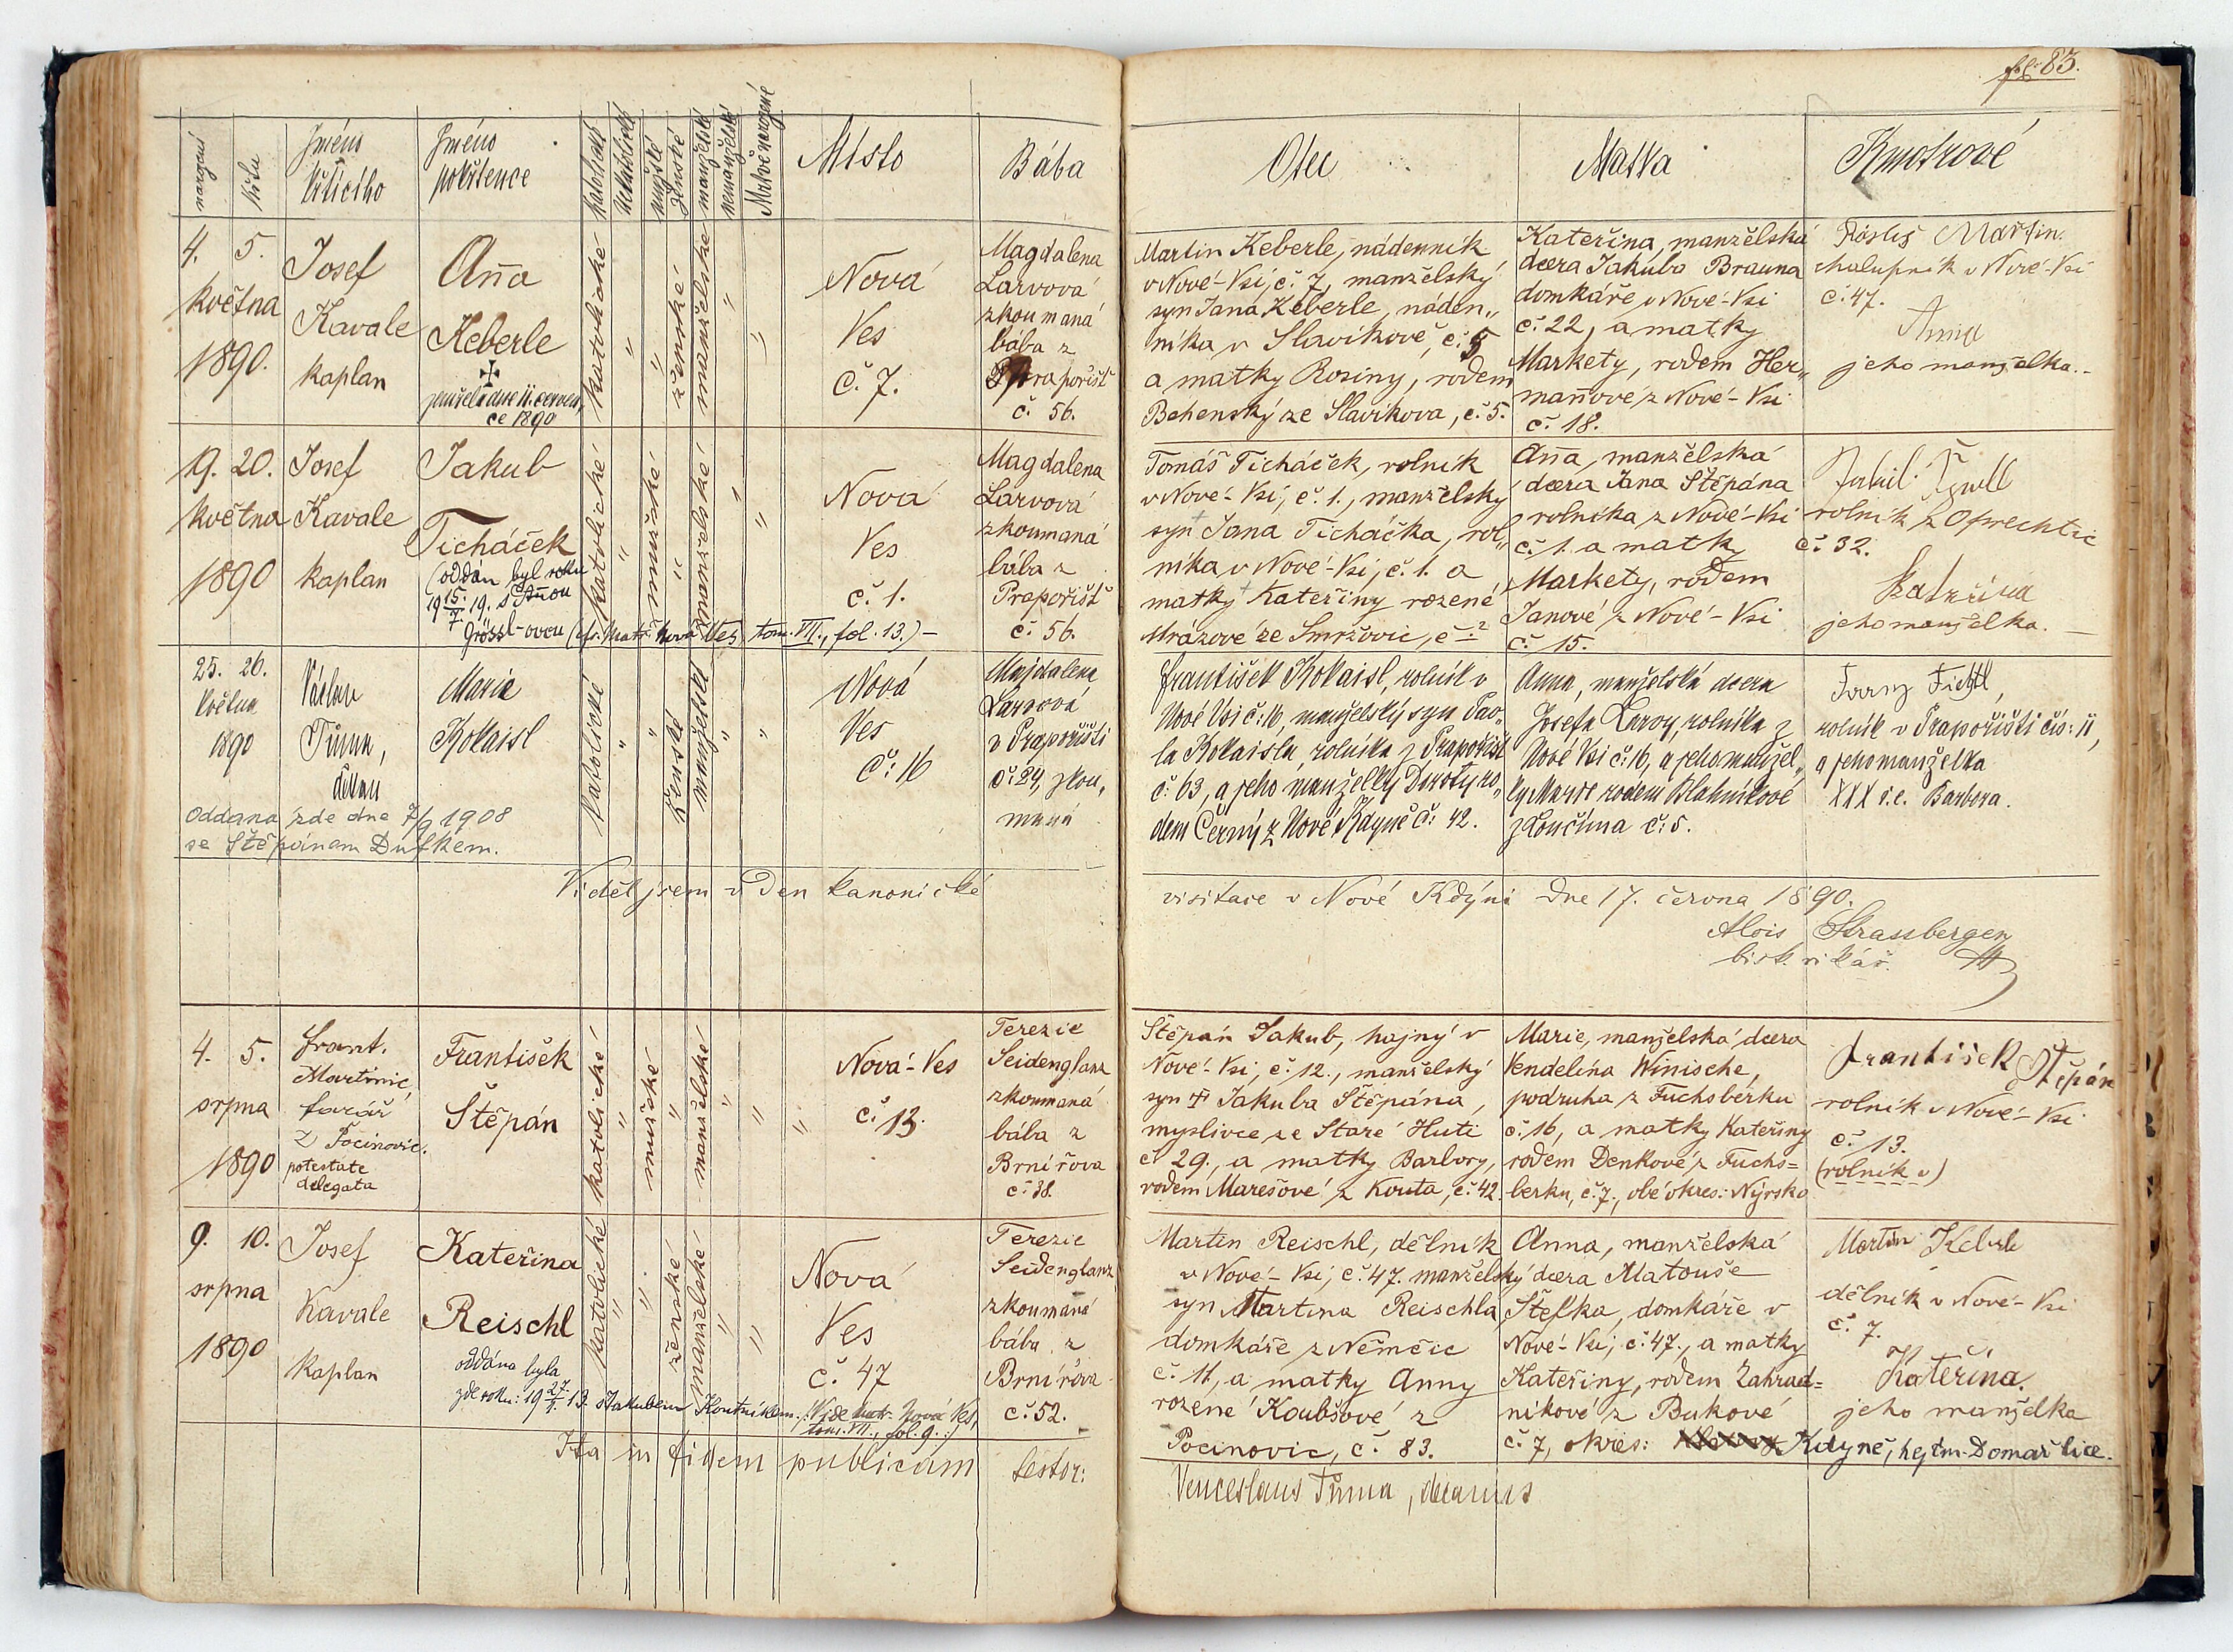 fol. 83.
narození
křtu
Jméno
křtícího
Jméno
pokřtence
katolické
nekatolické
mužské
ženské
manželské
nemanželské
Mrtvě narozené
Místo
Bába
Otec
Matka
Kmotrové
4. 5.
května
1890.
Josef
Kavale
kaplan
Anna
Keberle
zemřela dne 11. červen„
ce 1890
katolické
"
"
ženské
manželské
"
"
Nová
Ves
č. 7.
Magdalena
Larvová
zkoumaná
bába z
Prapořišť
č. 56.
Martin Keberle, nádenník
v Nové-Vsi, č. 7, manželský
syn Jana Keberle, náden„
níka v Slavíkově, č. 5
a matky Rosiny, rodem
Behenský ze Slavíkova, č. 5.
Kateřina, manželská
dcera Jakuba Brauna
domkáře v Nové-Vsi
č. 22, a matky
Markety, rodem Her„
mannové z Nové-Vsi
č. 18.
Martin
chalupník v Nové-Vsi
č. 47.
Anna
jeho manželka.
19. 20.
května
1890
Josef
Kavale
kaplan
Jakub
Ticháček
(oddán byl roku
19 15./7. 19. s Annou
Grössl-ovou (cf. matr. Nová Ves, tom. VII., fol. 13.) –
katolické
"
mužské
"
manželské
"
"
Nová
Ves
č. 1.
Magdalena
Larvová
zkoumaná
bába z
Prapořišť
č. 56.
Tomáš Ticháček, rolník
v Nové-Vsi, č. 1., manželský
syn Jana Ticháčka, rol„
níka v Nové-Vsi, č. 1. a
matky Kateřiny rozené
Mrázové ze Smržovic, č. 2
Anna, manželská
dcera Jana Štěpána
rolníka z Nové-Vsi
č. 1. a matky
Markety, rodem
Janové z Nové-Vsi
č. 15.
rolník z Oprechtic
č. 32.
Kateřina
jeho manželka.
25. 26.
května
1890
Václav
Tůma,
děkan
Marie
Kokaisl
Oddana zde dne 7/9 1908
se Štěpánem Dufkem.
katolické
"
"
ženské
manželské
"
"
Nová
Ves
č: 16
Majdalena
Larvová
v Prapořišti
zkou„
maná
František Kokaisl, rolník v
Nové Vsi č: 16, manželský syn Pav„
la Kokaisla, rolníka z Prapořišť
č. 63, a jeho manželky Doroty ro„
dem Černý z Nové Kdyně č: 42.
Anna, manželská dcera
Josefa Larvy, rolníka z
Nové Vsi č: 16, a jeho manžel„
ky Marie rodem Blahníkové
z Loučima č: 5.
Franz Fichtl,
rolník v Prapořišti čís: 11,
a jeho manželka
XXX i.e. Barbora.
Viděl jsem v den kanonické
visitace v Nové Kdýni dne 17. června 1890.
Alois Strassberger
bisk. vikář.
4. 5.
srpna
1890
Frant.
Martinic,
farář
z Pocinovic.
potestate
delegata
František
Štěpán
katolické
"
mužské
"
manželské
"
"
"
Nová-Ves
č. 13.
Terezie
Seidenglanz
zkoumaná
bába z
Brnířova
č. 38.
Štěpán Jakub, hajný v
Nové-Vsi, č. 12., manželský
syn † Jakuba Štěpána,
myslivce ze Staré Huti
č. 29., a matky Barbory,
rodem Marešové z Kouta, č. 42.
Marie, manželská dcera
Vendelína Winische,
podruha z Fuchsberku
č. 16, a matky Kateřiny
rodem Denkové z Fuchs=
berku, č. 7., obé okres: Nýrsko
František Štěpán
rolník v Nové-Vsi
č. 13.
(rolník v)
9. 10.
srpna
1890
Josef
Kavale
kaplan
Kateřina
Reischl
oddána byla
zde roku: 19 27./1. 13. s Jakubem Koutníkem. (Vide matr. Nová Ves,
tom. VII., fol. 9.)
katolické
"
"
ženské
manželské
"
"
Nová
Ves
č. 47
Terezie
Seidenglanz
zkoumaná
bába z
Brnířova
č. 52.
Martin Reischl, dělník
v Nové-Vsi, č. 47. manželský
syn Martina Reischla
domkáře z Němčic
č. 11, a matky Anny
rozené Koubšové z
Pocinovic, č. 83.
Anna, manželská
dcera Matouše
Štefka, domkáře v
Nové-Vsi, č. 47., a matky
Kateřiny, rodem Zahrad=
níkové z Bukové
č. 7, okres: Kdyně, hejtm. Domažlice.
Martin Keberle
dělník v Nové-Vsi
č. 7.
Kateřina.
jeho manželka
Ita in fidem publicam testor:
Venceslaus Tůma, decanus